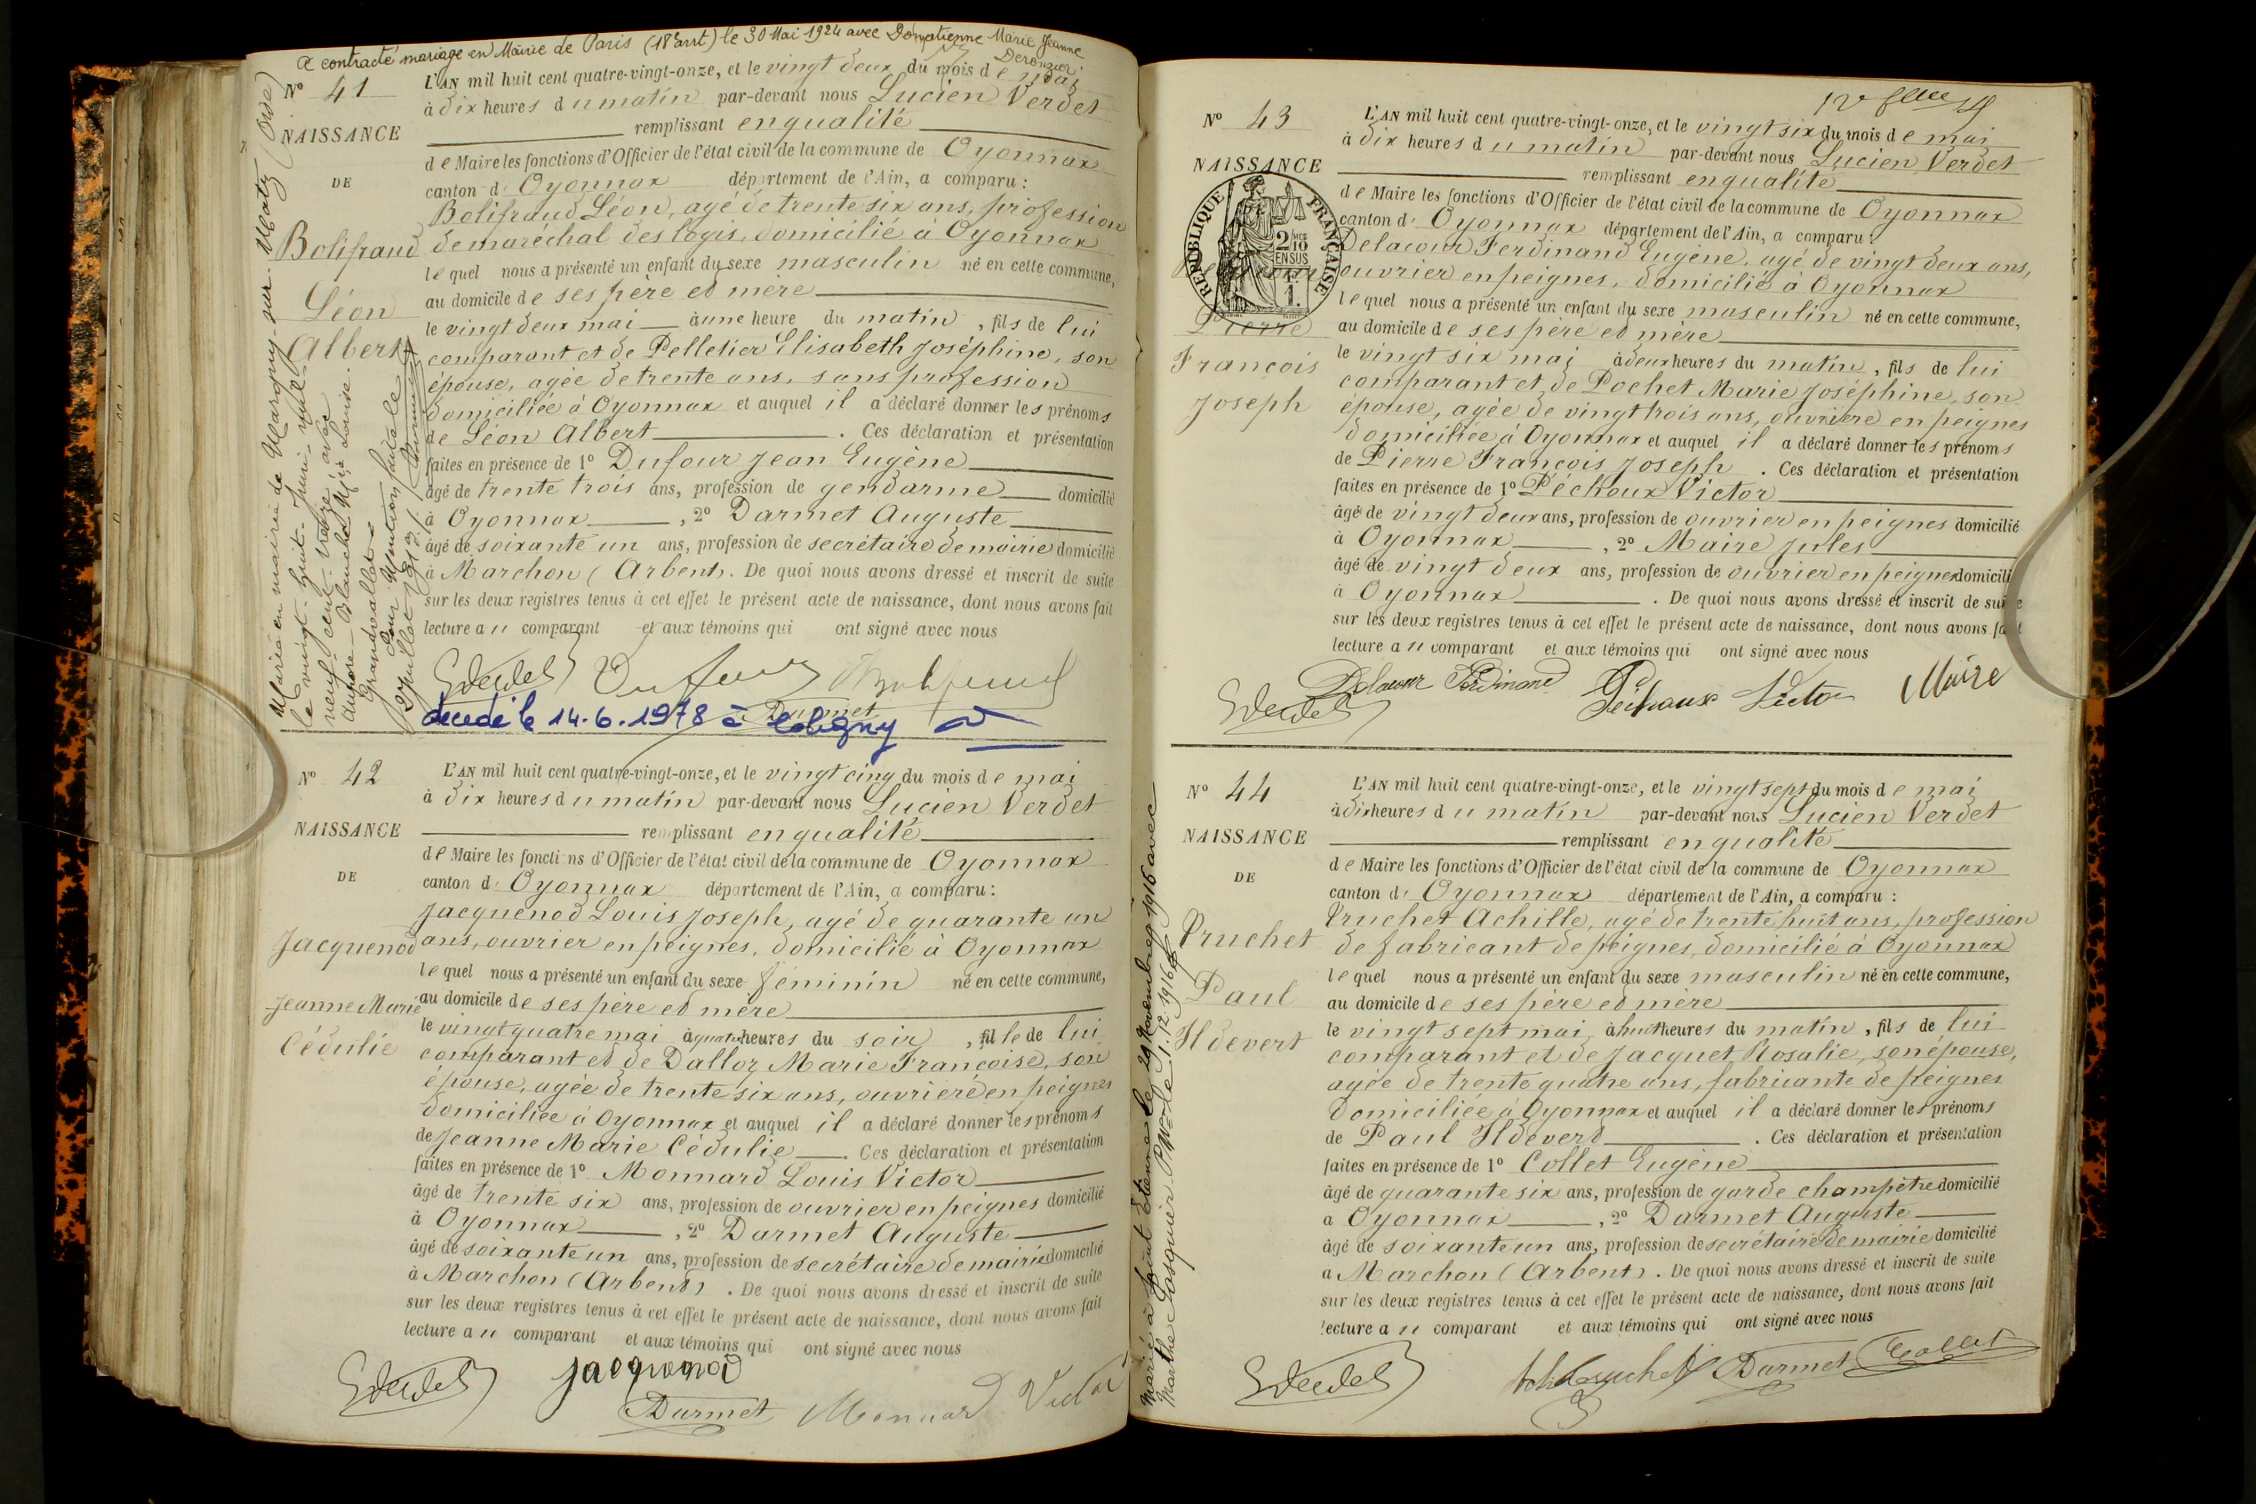 A contracté mariage en Mairie de Paris (18e arrt) le 30 Mai 1924 avec Donatienne Marie Jeanne
Nº 41
NAISSANCE
DE
Bolifraud
Léon
Albert
L'AN mil huit cent quatre-vingt-onze, et le vingt deux du mois de mai
à dix heures du matin par-devant nous Lucien Verdet
remplissant en qualité
de Maire les fonctions d'Officier de l'état civil de la commune de Oyonnax
canton d' Oyonnax département de l'Ain, a comparu :
Bolifraud Léon, agé de trente six ans, profession
de maréchal des logis, domicilié à Oyonnax
lequel nous a présenté un enfant du sexe masculin né en cette commune,
au domicile de ses père et mère
le vingt deux mai à une heure du matin, fils de lui
comparant et de Pelletier Elisabeth Joséphine, son
épouse, agée de trente ans, sans profession
domiciliée à Oyonnax et auquel il a déclaré donner les prénoms
de Léon Albert. Ces déclaration et présentation
faites en présence de 1º Dufour Jean Eugène
âgé de trente trois ans, profession de gendarme domicilié
à Oyonnax, 2º Darmet Auguste
âgé de soixante un ans, profession de secrétaire de mairie domicilié
à Marchon (Arbent). De quoi nous avons dressé et inscrit de suite
sur les deux registres tenus à cet effet le présent acte de naissance, dont nous avons fait
lecture au comparant et aux témoins qui ont signé avec nous
Dufour
Darmet
décédé le 14.6.1978 à Coligny
Marié en mairie de Margny sur Matz (Oise)
le vingt-huit Juin mil
neuf cent treize avec
Blanche Louise
Pour Mention
Nº 42
NAISSANCE
DE
Jacquenod
Jeanne Marie
Cédulie
L'AN mil huit cent quatre-vingt-onze, et le vingt cinq du mois de mai
à dix heures du matin par-devant nous Lucien Verdet
remplissant en qualité
de Maire les fonctions d'Officier de l'état civil de la commune de Oyonnax
canton d' Oyonnax département de l'Ain, a comparu :
Jacquenod Louis Joseph, agé de quarante un
ans, ouvrier en peignes, domicilié à Oyonnax
lequel nous a présenté un enfant du sexe féminin né en cette commune,
au domicile de ses père et mère
le vingt quatre mai à quatre heures du soir, fille de lui
comparant et de Dalloz Marie Françoise, son
épouse, agée de trente six ans, ouvrière en peignes
domiciliée à Oyonnax et auquel il a déclaré donner les prénoms
de Jeanne Marie Cédulie. Ces déclaration et présentation
faites en présence de 1º Monnard Louis Victor
âgé de trente six ans, profession de ouvrier en peignes domicilié
à Oyonnax, 2º Darmet Auguste
âgé de soixante un ans, profession de secrétaire de mairie domicilié
à Marchon (Arbent). De quoi nous avons dressé et inscrit de suite
sur les deux registres tenus à cet effet le présent acte de naissance, dont nous avons fait
lecture au comparant et aux témoins qui ont signé avec nous
Jacquenod
Darmet Monnard Victor
Nº 43
NAISSANCE
RÉPUBLIQUE FRANÇAISE
Pierre
François
Joseph
L'AN mil huit cent quatre-vingt-onze, et le vingt six du mois de mai
à dix heures du matin par-devant nous Lucien Verdet
remplissant en qualité
de Maire les fonctions d'Officier de l'état civil de la commune de Oyonnax
canton d' Oyonnax département de l'Ain, a comparu :
Delacour Ferdinand Eugène, agé de vingt deux ans,
ouvrier en peignes, domicilié à Oyonnax
lequel nous a présenté un enfant du sexe masculin né en cette commune,
au domicile de ses père et mère
le vingt six mai à deux heures du matin, fils de lui
comparant et de Pochet Marie Joséphine, son
épouse, agée de vingt trois ans, ouvrière en peignes
domiciliée à Oyonnax et auquel il a déclaré donner les prénoms
de Pierre François Joseph. Ces déclaration et présentation
faites en présence de 1º Péchoux Victor
âgé de vingt deux ans, profession de ouvrier en peignes domicilié
à Oyonnax, 2º Maire Jules
âgé de vingt deux ans, profession de ouvrier en peignes domicilié
à Oyonnax. De quoi nous avons dressé et inscrit de suite
sur les deux registres tenus à cet effet le présent acte de naissance, dont nous avons fait
lecture au comparant et aux témoins qui ont signé avec nous
Delacour Ferdinand Péchoux Victor Maire
Nº 44
NAISSANCE
DE
Pruchet
Paul
Ildevert
L'AN mil huit cent quatre-vingt-onze, et le vingt sept du mois de mai
à dix heures du matin par-devant nous Lucien Verdet
remplissant en qualité
de Maire les fonctions d'Officier de l'état civil de la commune de Oyonnax
canton d' Oyonnax département de l'Ain, a comparu :
Pruchet Achille, agé de trente huit ans, profession
de fabricant de peignes, domicilié à Oyonnax
lequel nous a présenté un enfant du sexe masculin né en cette commune,
au domicile de ses père et mère
le vingt sept mai à huit heures du matin, fils de lui
comparant et de Jacquet Rosalie, son épouse,
agée de trente quatre ans, fabricante de peignes
domiciliée à Oyonnax et auquel il a déclaré donner les prénoms
de Paul Ildevert. Ces déclaration et présentation
faites en présence de 1º Collet Eugène
âgé de quarante six ans, profession de garde champêtre domicilié
à Oyonnax, 2º Darmet Auguste
âgé de soixante un ans, profession de secrétaire de mairie domicilié
à Marchon (Arbent). De quoi nous avons dressé et inscrit de suite
sur les deux registres tenus à cet effet le présent acte de naissance, dont nous avons fait
lecture au comparant et aux témoins qui ont signé avec nous
Darmet Collet
Marié à Saint Etienne le 29 Novembre 1916 avec
Marthe